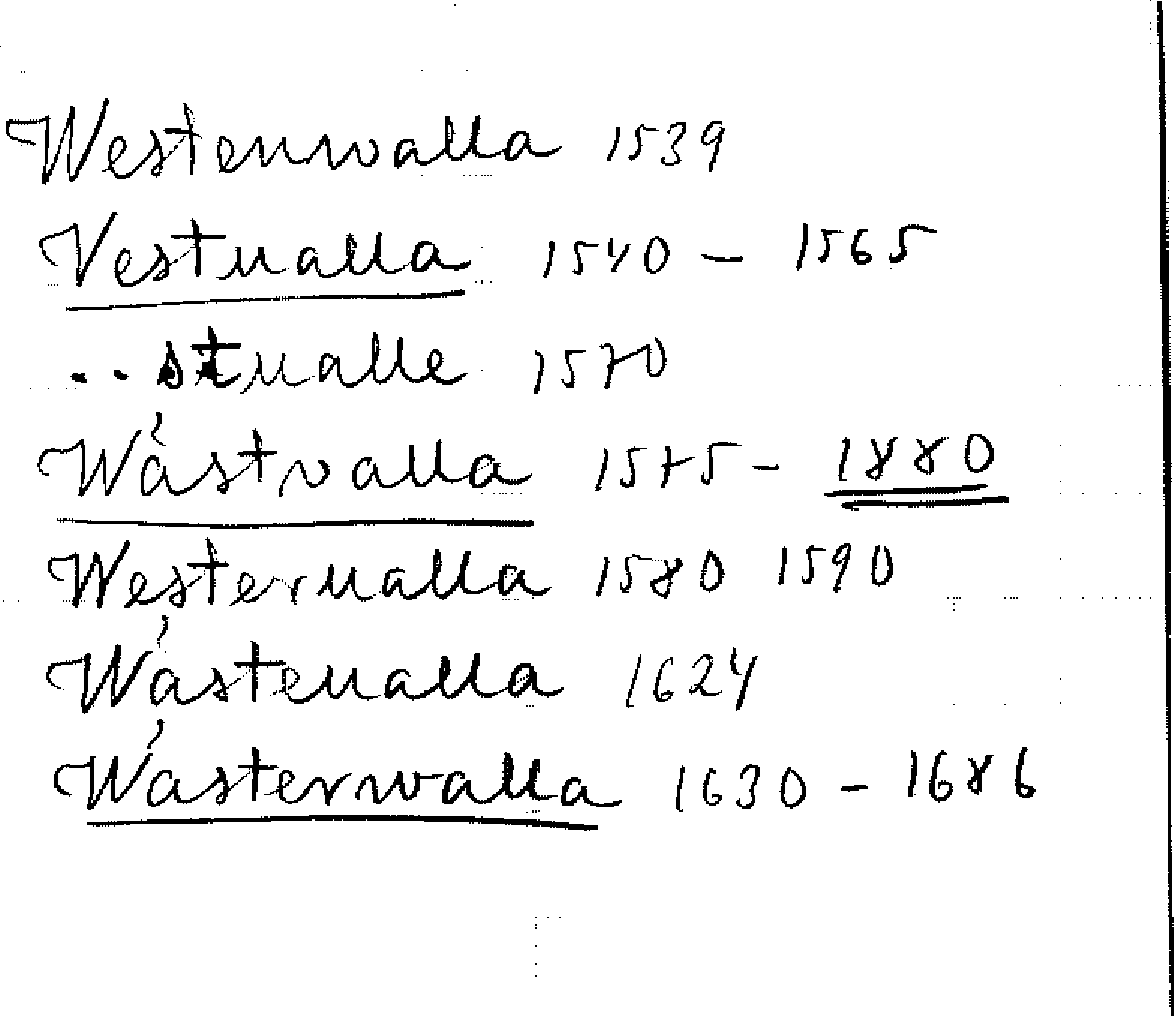 Westenwalla 1539
Vestualla 1540 - 1565
.. stualle 1570
Wästvalla 1575 - 1880
Westerualla 1580 1590
Wästeualla 1624
Wästerwalla 1630 - 1686